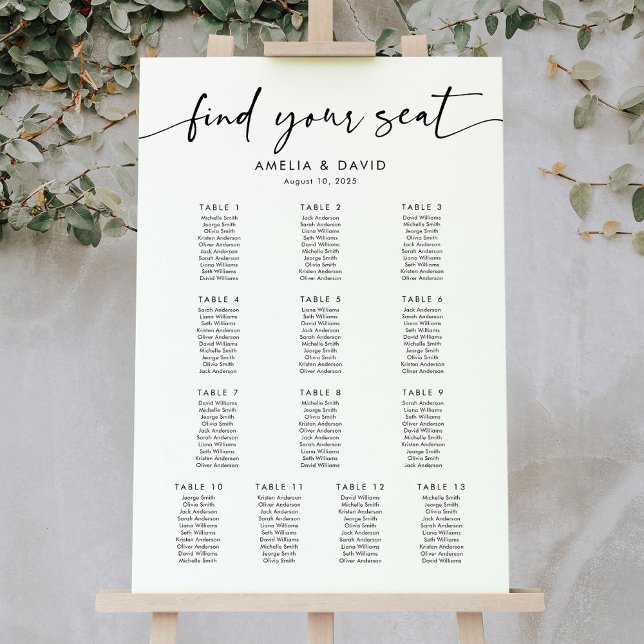 find your seat
AMELIA & DAVID
August 10, 2025
TABLE 1
Michelle Smith
Jeorge Smith
Olivia Smith
Kristen Anderson
Oliver Anderson
Jack Anderson
Sarah Anderson
Liana Williams
Seth Williams
David Williams
TABLE 2
Jack Anderson
Sarah Anderson
Liana Williams
Seth Williams
David Williams
Michelle Smith
Jeorge Smith
Olivia Smith
Kristen Anderson
Oliver Anderson
TABLE 3
David Williams
Michelle Smith
Jeorge Smith
Olivia Smith
Jack Anderson
Sarah Anderson
Liana Williams
Seth Williams
Kristen Anderson
Oliver Anderson
TABLE 4
Sarah Anderson
Liana Williams
Seth Williams
Kristen Anderson
Oliver Anderson
David Williams
Michelle Smith
Jeorge Smith
Olivia Smith
Jack Anderson
TABLE 5
Liana Williams
Seth Williams
David Williams
Michelle Smith
Jeorge Smith
Olivia Smith
Kristen Anderson
Oliver Anderson
Jack Anderson
Sarah Anderson
TABLE 6
Jack Anderson
Sarah Anderson
Liana Williams
Seth Williams
David Williams
Michelle Smith
Jeorge Smith
Olivia Smith
Kristen Anderson
Oliver Anderson
TABLE 7
David Williams
Michelle Smith
Jeorge Smith
Olivia Smith
Jack Anderson
Sarah Anderson
Liana Williams
Seth Williams
Kristen Anderson
Oliver Anderson
TABLE 8
Michelle Smith
Jeorge Smith
Olivia Smith
Kristen Anderson
Oliver Anderson
Jack Anderson
Sarah Anderson
Liana Williams
Seth Williams
David Williams
TABLE 9
Sarah Anderson
Liana Williams
Seth Williams
Kristen Anderson
Oliver Anderson
David Williams
Michelle Smith
Jeorge Smith
Olivia Smith
Jack Anderson
TABLE 10
Jeorge Smith
Olivia Smith
Jack Anderson
Sarah Anderson
Liana Williams
Seth Williams
Kristen Anderson
Oliver Anderson
David Williams
Michelle Smith
TABLE 11
Kristen Anderson
Oliver Anderson
Jack Anderson
Sarah Anderson
Liana Williams
Seth Williams
David Williams
Michelle Smith
Jeorge Smith
Olivia Smith
TABLE 12
David Williams
Michelle Smith
Jeorge Smith
Olivia Smith
Jack Anderson
Sarah Anderson
Liana Williams
Seth Williams
Kristen Anderson
Oliver Anderson
TABLE 13
Michelle Smith
Jeorge Smith
Olivia Smith
Kristen Anderson
Oliver Anderson
Jack Anderson
Sarah Anderson
Liana Williams
Seth Williams
David Williams